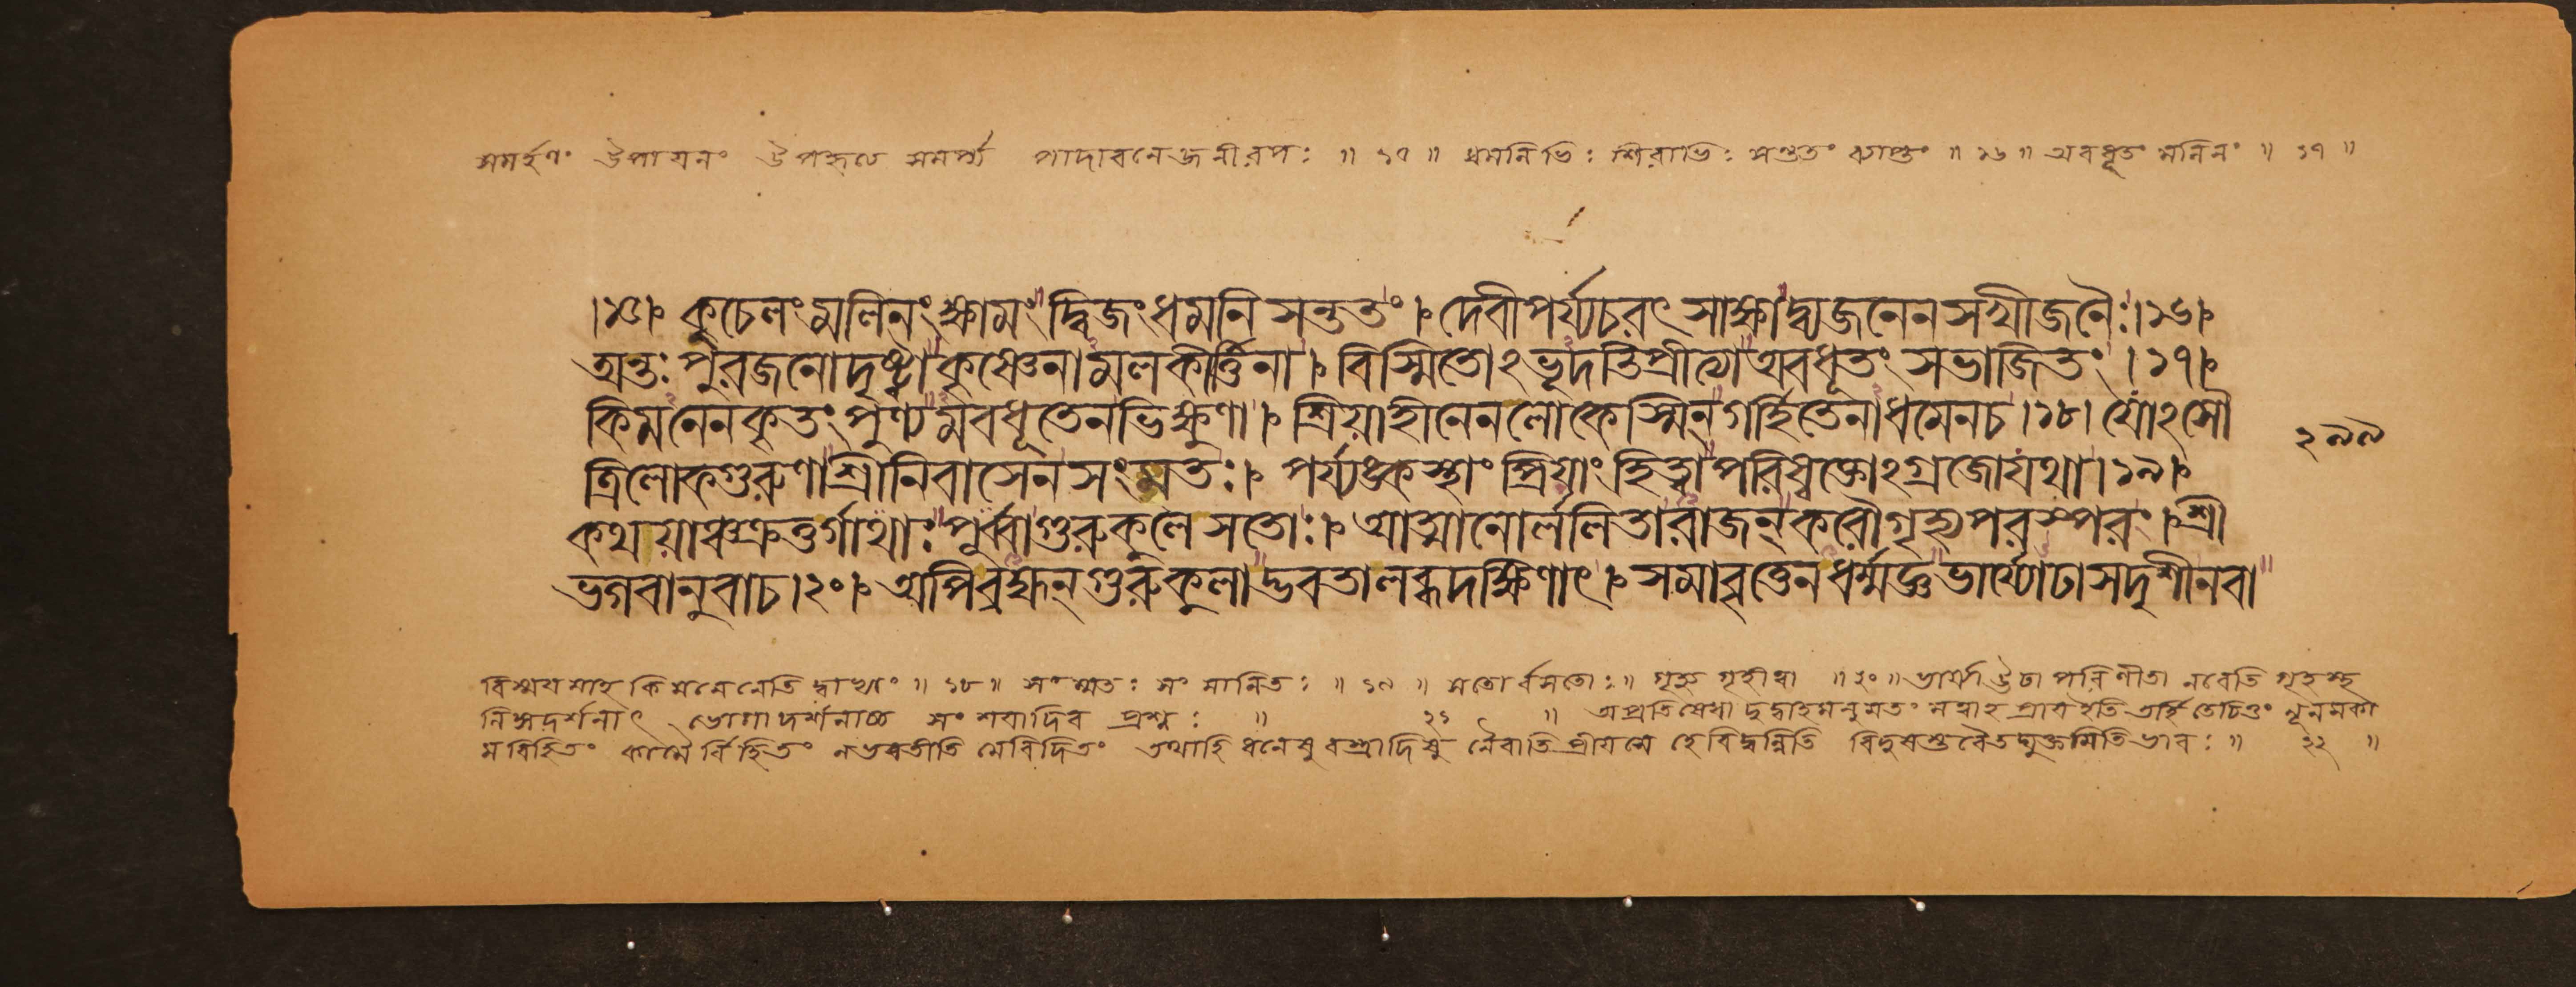 সমর্হণং উপায়নং উপহৃত্য সমর্প্য পাদাবনেজনীরপঃ ॥ ১৫ ॥ ধমনিভিঃ শিরাভিঃ সন্ততং ব্যাপ্তং ॥ ১৬ ॥ অবধূতং মলিনং ॥ ১৭ ॥
।১৫। কুচেলং মলিনং ক্ষামং দ্বিজং ধমনি সন্ততং । দেবীপর্য্যচরৎ সাক্ষাদ্ব্যজনেনসখীজনৈঃ।১৬।
অন্তঃপুরজনোদৃষ্ট্বা কৃষ্ণেনামলকীর্ত্তিনা । বিস্মিতোঽভূদতিপ্রীত্যা অবধূতং সভাজিতং ।১৭।
কিমনেনকৃতং পুণ্যমবধূতেনভিক্ষুণা । শ্রিয়াহীনেনলোকেস্মিন্ গর্হিতেনাধমেনচ ।১৮। যোঽসৌ
ত্রিলোকগুরুণা শ্রীনিবাসেন সংমতঃ । পর্য্যঙ্কস্থাং শ্রিয়াং হিত্বা পরিষ্বক্তোঽগ্রজোযথা ।১৯।
কথয়াঞ্চক্রতুর্গাথাঃ পূর্ব্বাগুরুকুলে সতোঃ । আত্মনোর্ললিতারাজন্ করৌগৃহ্যপরস্পরং । শ্রী
ভগবানুবাচ ।২০। অপিব্রহ্মন্ গুরুকুলাদ্ভবতালব্ধদক্ষিণাৎ । সমাবৃত্তেনধর্ম্মজ্ঞভার্য্যোঢাসদৃশীনবা
বিস্ময়মাহ কিমনেনেতি দ্বাভ্যাং ॥ ১৮ ॥ সংমতঃ সংমানিতঃ ॥ ১৯ ॥ সতোর্বসতোঃ ॥ গৃহ্য গৃহীত্বা ॥ ২০ ॥ ভার্য্যাউঢা পরিণীতা নবেতি গৃহস্থ
দর্শনাৎ ভোগাদর্শনাচ্চ সংশয়াদিব প্রশ্নঃ ॥ ২১ ॥ ইতি নূনমকা
মবিহিতং কামৈর্বিহিতং নভবতীতি মেবিদিতং তথাহি ধনেষু বস্ত্রাদিষু নৈবাতিপ্রীয়সে হেবিদ্বন্নিতি যুক্তমিতিভাবঃ ॥ ২২ ॥
২৯৯